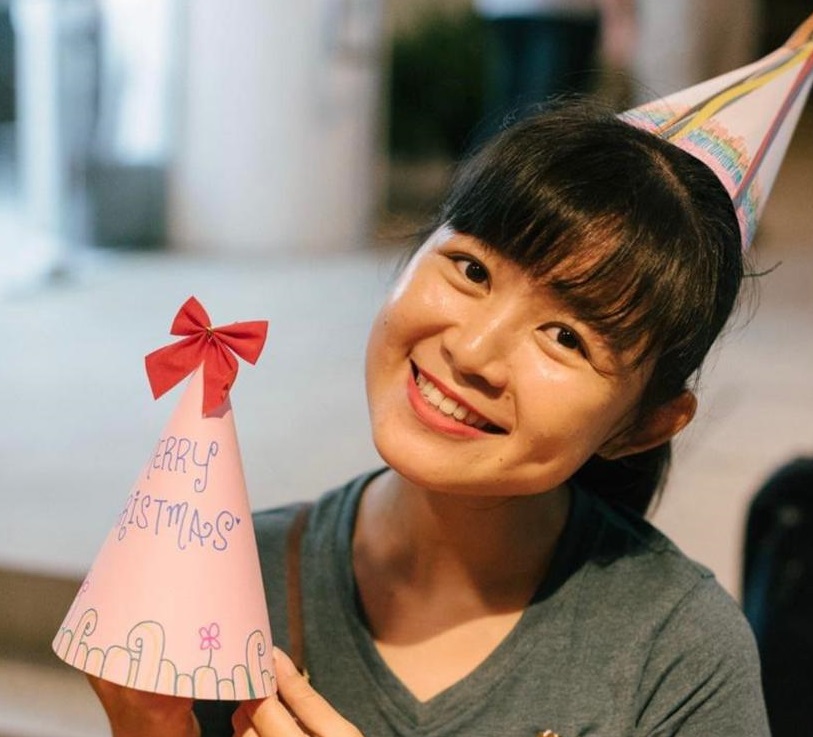 ERRY
RISTMAS